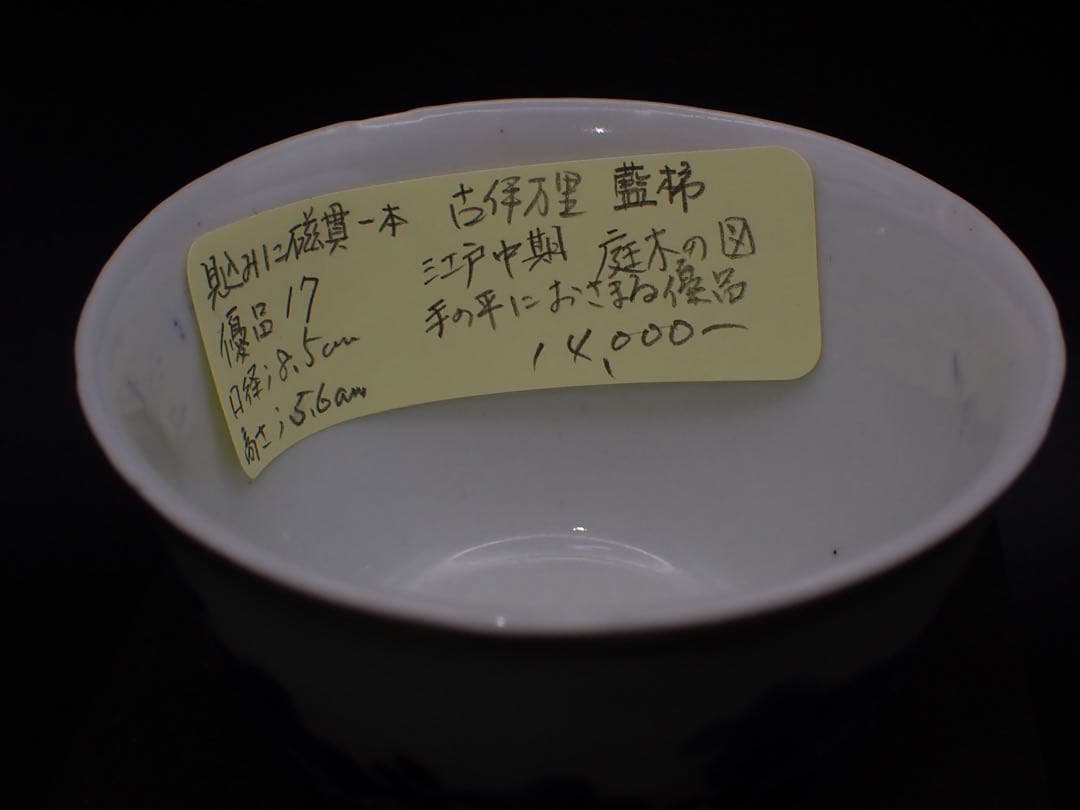 古伊万里 藍柿
江戸中期 庭木の図
手の平におさまる優品
14,000ー
見込みに磁貫一本
優品 17
口径;8.5cm
高さ;5.6cm